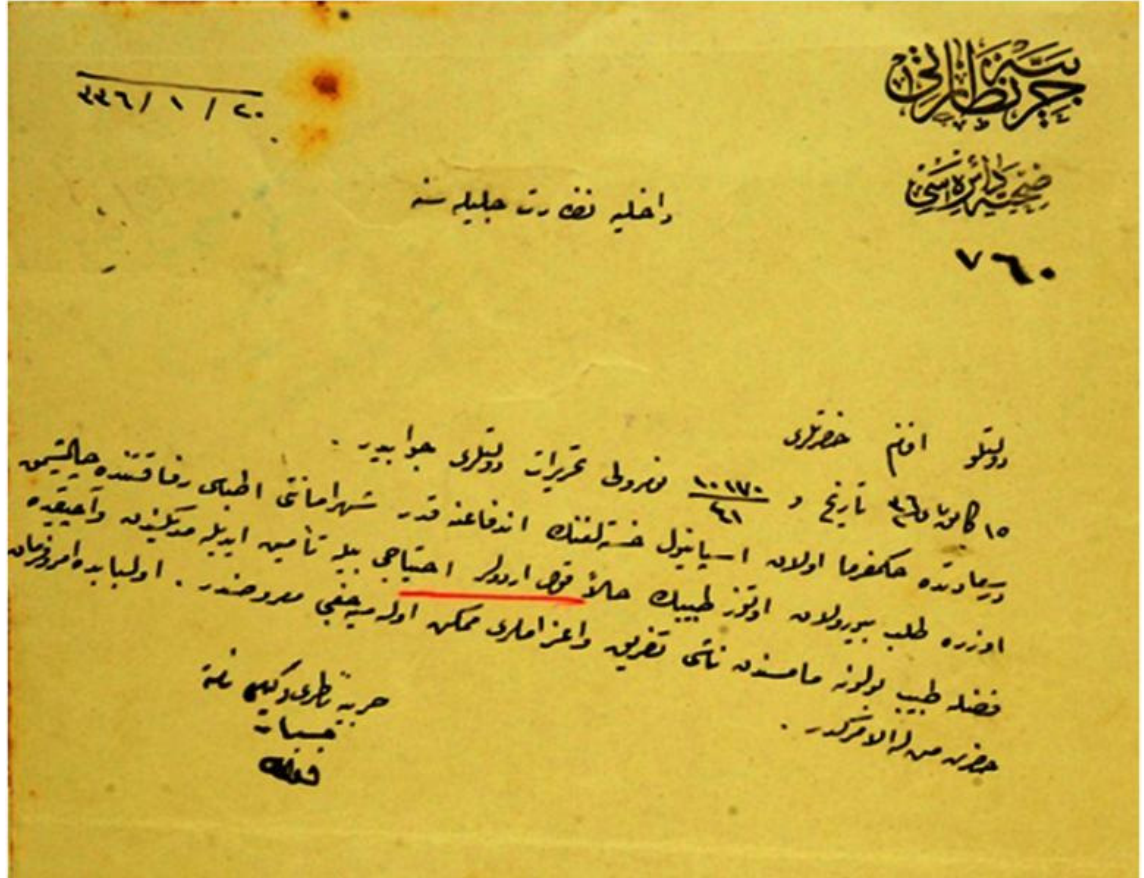 حربیه نظارتی
صحیه دائره‌سی
٧٦٠
٣٣٦ / ١ / ٢٠
داخلیه نظارت جلیله سنه
دولتلو افندم حضرتلری
١٥ کانون ثانی ٣٦ تاریخ و ١٠١٧٠/٤١ نومرولی تحریرات دولتلری جوابیدر .
درسعادتده حکمفرما اولان اسپانیول خسته لغنك اندفاعنه قدر شهرامانتی اطباسی رفاقتنده چالیشمق
اوزره طلب بیوریلان اوتوز طبیبك حالاً قول اردولر احتیاجی بیله تأمین ایدیله مدیکندن و
فضله طبیب بولونه مامسندن ناشی تفریق و اعزاملری ممکن اوله میه جغی معروضدر . اولبابده امر وفرمان
حضرت من له الامرکدر .
حربیه ناظری وکیلی نامنه